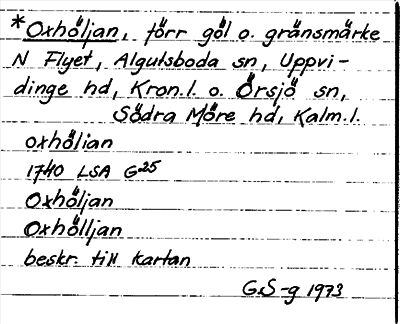 *Oxhöljan, förr göl o. gränsmärke
N Flyet, Algutsboda sn, Uppvi-
dinge hd, Kron.l. o. Örsjö sn,
Södra Möre hd, Kalm.l.
oxhölian
1740 LSA G25
Oxhöljan
Oxhölljan
beskr. till kartan
G.S-g 1973